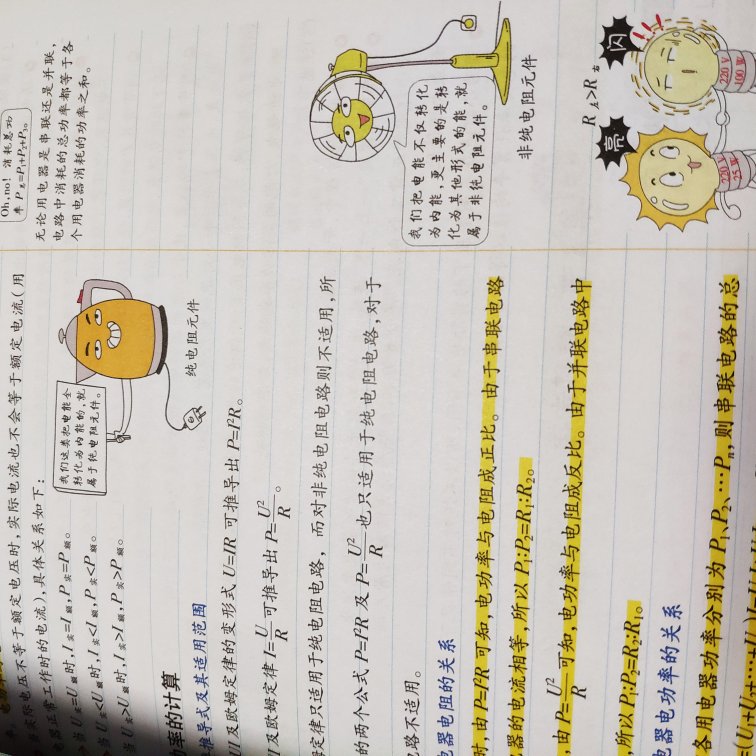 Oh, no! 消耗总功
率 P总=P₁+P₂+P₃。
无论用电器是串联还是并联，
电路中消耗的总功率都等于各
个用电器消耗的功率之和。
我们把电能不仅转化
为内能，更主要的是转
化为其他形式的能，就
属于非纯电阻元件。
非纯电阻元件
R左>R右
亮
闪
220 V
25 W
220 V
100 W
当实际电压不等于额定电压时，实际电流也不会等于额定电流(用
电器正常工作时的电流)，具体关系如下：
当U实=U额时，I实=I额，P实=P额。
当U实<U额时，I实<I额，P实<P额。
当U实>U额时，I实>I额，P实>P额。
我们这类把电能全
转化为内能的，就
属于纯电阻元件。
纯电阻元件
率的计算
推导式及其适用范围
及欧姆定律的变形式U=IR可推导出P=I²R。
及欧姆定律I=U/R可推导出P=U²/R。
定律只适用于纯电阻电路，而对非纯电阻电路则不适用，所
的两个公式P=I²R及P=U²/R也只适用于纯电阻电路，对于
路不适用。
电器电阻的关系
时，由P=I²R可知，电功率与电阻成正比。由于串联电路
器的电流相等，所以P₁:P₂=R₁:R₂。
由P=U²/R可知，电功率与电阻成反比。由于并联电路中
所以P₁:P₂=R₂:R₁。
电器电功率的关系
各用电器功率分别为P₁、P₂、…Pₙ，则串联电路的总